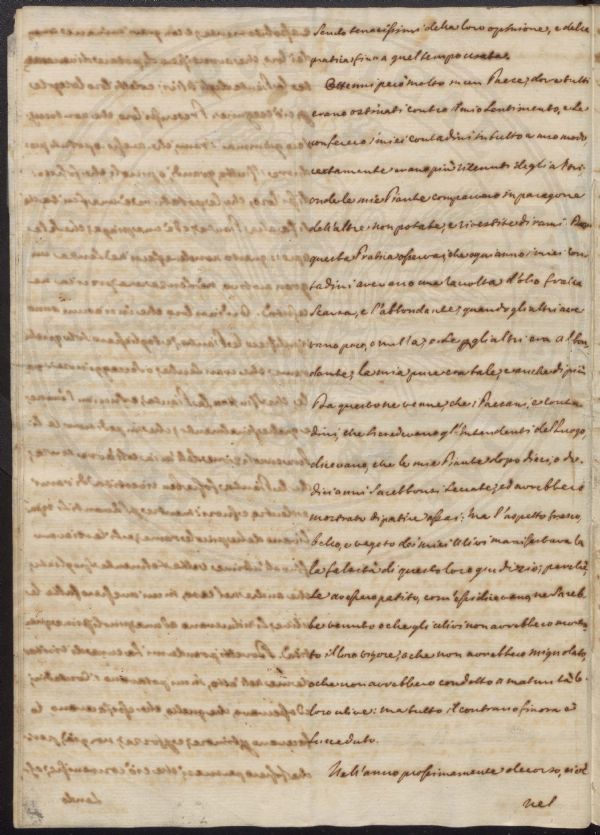 sendo tenacissimi della loro opinione, e della
pratica, fino a quel tempo usata.
Ottenni però molto in un Paese, dove tutti
erano ostinati contro il mio sentimento, e se
confesso, i miei contadini in tutto a mio modo
certamente erano più di tenuti degli altri
onde le mie Piante comparivano in paragone
dell'altre non potate, e rivestite di rami. Per
questa Pratica osservai, che ogni anno i miei con-
tadini avevano una raccolta d'olio fra la
scarsa, e l'abbondante; quando gli altri ave
vano poco, o nulla; o se pegli altri era abbon
dante, la mia pure era tale, e anche di più
Da questo ne venne, che i Paesani, e conta
dini, che si credevano gl'Intendenti del luogo,
dicevano, che le mie Piante dopo dieci, o do-
dici anni sarebbonsi seccate, ed avrebbero
mostrato di patire assai: Ma l'aspetto fresco,
bello, e vegeto dei miei Ulivi manifestava la
la falsità di questo loro giudizio; perché
se avessero patito, com'essi dicevano, ne sareb-
be venuto o che gli ulivi non avrebbero mostra-
to il loro vigore, o che non avrebbero mignolato,
o che non avrebbero condotto a maturità le
loro ulive: ma tutto il contrario finora è
succeduto.
Nell'anno prossimamente decorso, cioè
nel